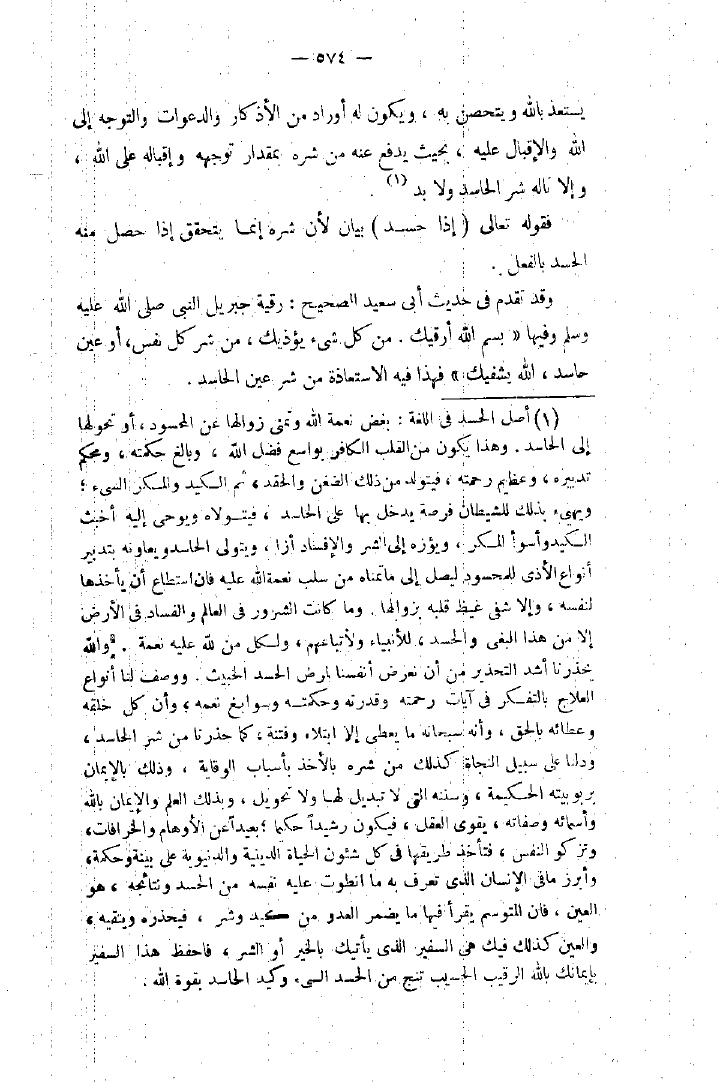 — ٥٧٤ —
يستعذ بالله ويتحصن به ، ويكون له أوراد من الأذكار والدعوات والتوجه إلى
الله والإقبال عليه ، بحيث يدفع عنه من شره بمقدار توجهه وإقباله على الله ،
وإلا ناله شر الحاسد ولا بد (١) .
فقوله تعالى ( إذا حسد ) بيان لأن شره إنما يتحقق إذا حصل منه
الحسد بالفعل .
وقد تقدم فى حديث أبى سعيد الصحيح : رقية جبريل النبى صلى الله عليه
وسلم وفيها « بسم الله أرقيك . من كل شىء يؤذيك ، من شر كل نفس، أو عين
حاسد ، الله يشفيك » فهذا فيه الاستعاذة من شر عين الحاسد .
(١) أصل الحسد فى اللغة : بغض نعمة الله وتمنى زوالها عن المحسود ، أو تحولها
إلى الحاسد . وهذا يكون من القلب الكافر بواسع فضل الله ، وبالغ حكمته ، ومحكم
تدبيره ، وعظيم رحمته ، فيتولد من ذلك الضغن والحقد ، ثم الكيد والمكر السىء ؛
ويهىء بذلك للشيطان فرصة يدخل بها على الحاسد ، فيتولاه ويوحى إليه أخبث
الكيد وأسوأ المكر ، ويؤزه إلى الشر والإفساد أزا ، ويتولى الحاسد ويعاونه بتدبير
أنواع الأذى للمحسود ليصل إلى ماتمناه من سلب نعمة الله عليه فان استطاع أن يأخذها
لنفسه ، وإلا شفى غيظ قلبه بزوالها . وما كانت الشرور فى العالم والفساد فى الأرض
إلا من هذا البغى والحسد ، للأنبياء ولأتباعهم ، ولكل من لله عليه نعمة . والله
يحذرنا أشد التحذير من أن نعرض أنفسنا لمرض الحسد الخبيث . ووصف لنا أنواع
العلاج بالتفكر فى آيات رحمته وقدرته وحكمته وسوابغ نعمه ؛ وأن كل خلقه
وعطائه بالحق ، وأنه سبحانه ما يعطى إلا ابتلاء وفتنة ، كما حذرنا من شر الحاسد ،
ودلنا على سبيل النجاة كذلك من شره بالأخذ بأسباب الوقاية ، وذلك بالإيمان
بربوبيته الحكيمة ، وسننه التى لا تبديل لها ولا تحويل ، وبذلك العلم والإيمان بالله
وأسمائه وصفاته ، يقوى العقل ، فيكون رشيداً حكيما ؛ بعيداً عن الأوهام والخرافات،
وتزكو النفس ، فتأخذ طريقها فى كل شئون الحياة الدينية والدنيوية على بينة وحكمة،
وأبرز مافى الإنسان الذى تعرف به ما انطوت عليه نفسه من الحسد ونتائجه ، هو
العين ، فان المتوسم يقرأ فيها ما يضمر العدو من كيد وشر ، فيحذره ويتقيه ،
والعين كذلك فيك هى السفير الذى يأتيك بالخير أو الشر ، فاحفظ هذا السفير
بإيمانك بالله الرقيب الحسيب تنج من الحسد السىء وكيد الحاسد بقوة الله .